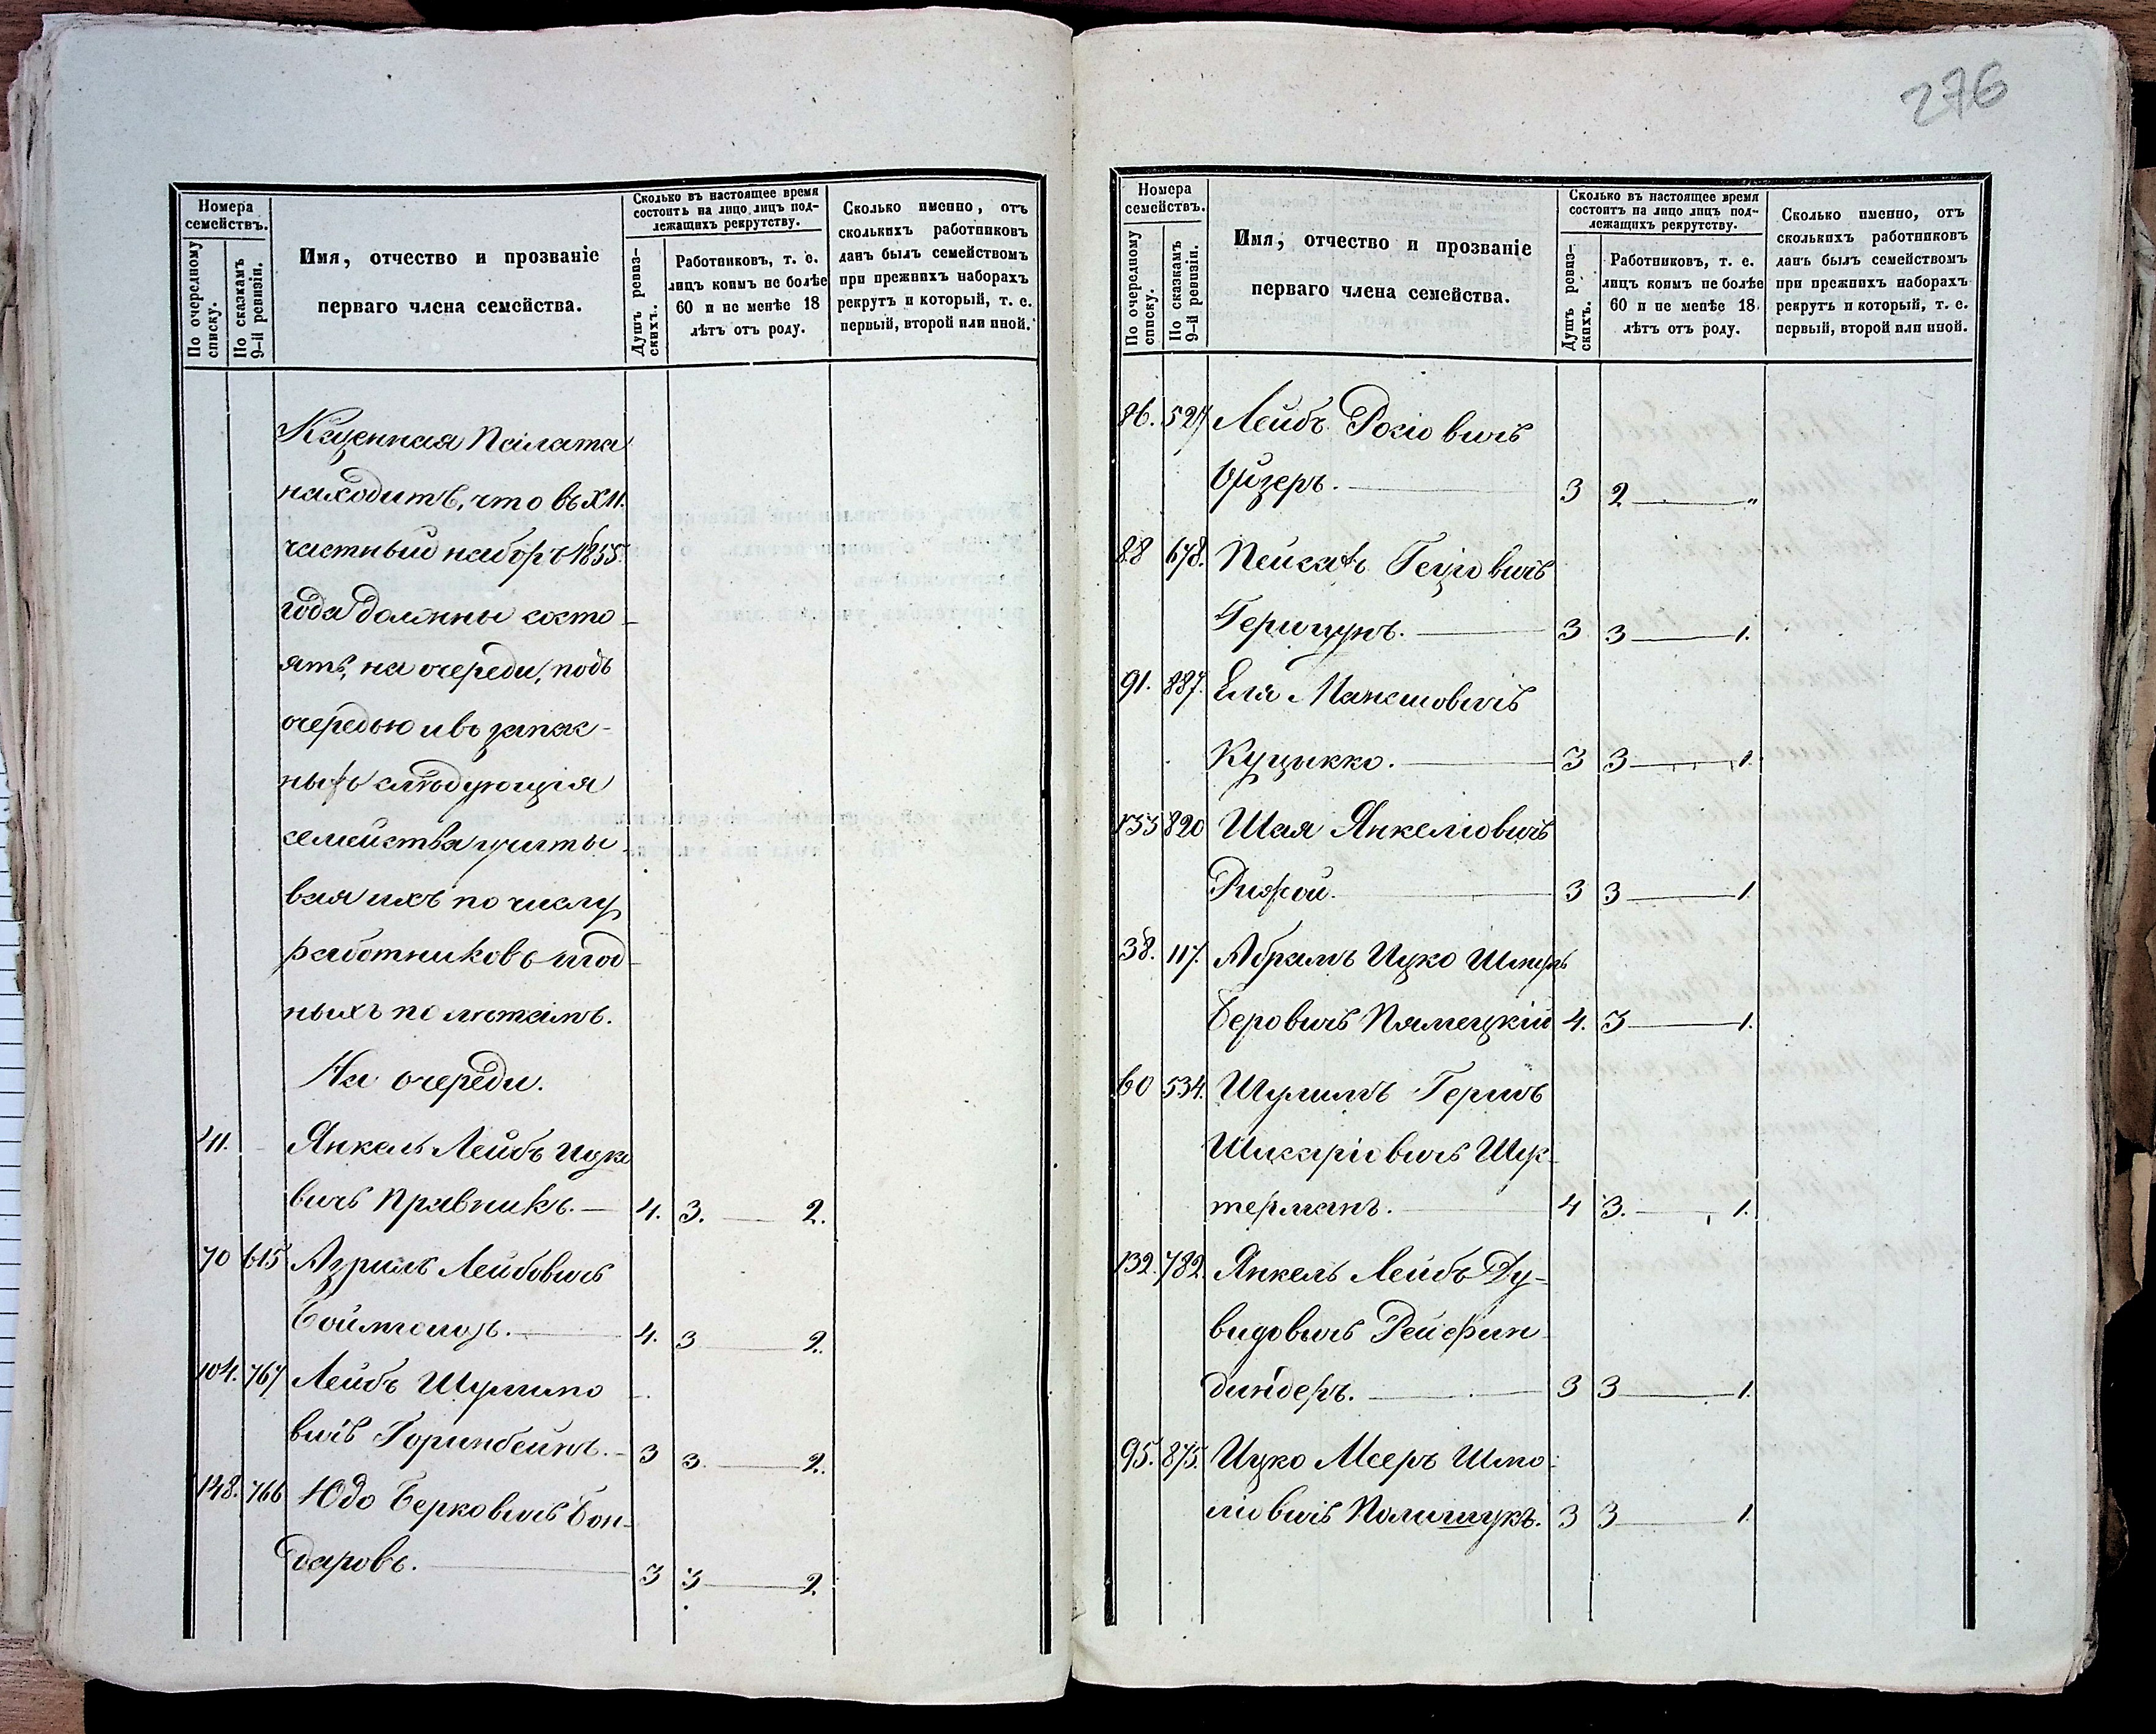 Номера семействъ.
По очередному списку.
По сказкамъ 9-й ревизіи.
Имя, отчество и прозваніе
перваго члена семейства.
Сколько въ настоящее время
состоитъ на лицо лицъ под-
лежащихъ рекрутству.
Душъ ревиз-
скихъ.
Работниковъ, т. е.
лицъ коимъ не болѣе
60 и не менѣе 18
лѣтъ отъ роду.
Сколько именно, отъ
сколькихъ работниковъ
данъ былъ семействомъ
при прежнихъ наборахъ
рекрутъ и который, т. е.
первый, второй или иной.
Казенная Палата
находитъ, что въ XII.
частный наборъ 1855.
года должны состо-
ять, на очереди, подъ
очередью и въ запас-
ныхъ слѣдующія
семейства
вая ихъ по числу
работниковъ год-
ныхъ по лѣтамъ.
На очереди.
41. Янкель Лейбъ Ицко
вичъ Правникъ. — 4. 3. — 2.
70 615 Азрилъ Лейбовичъ
4. 3 — 2.
104. 767 Лейбъ Шулимо
вичъ Горинбейнъ. — 3 3. — 2.
148. 766 Юдо Берковичъ Бон-
даровъ. — 3 3 — 2.
276
Номера
семействъ.
По очередному
списку.
По сказкамъ
9-й ревизіи.
Имя, отчество и прозваніе
перваго члена семейства.
Сколько въ настоящее время
состоитъ на лицо лицъ под-
лежащихъ рекрутству.
Душъ ревиз-
скихъ.
Работниковъ, т. е.
лицъ коимъ не болѣе
60 и не менѣе 18
лѣтъ отъ роду.
Сколько именно, отъ
сколькихъ работниковъ
данъ былъ семействомъ
при прежнихъ наборахъ
рекрутъ и который, т. е.
первый, второй или иной.
86. 527 Лейбъ
Ойзеръ. — 3 2 — "
88 678. Пейсахъ Геціовичъ
Гершунъ. — 3 3 — 1.
91. 887. Еля
Куцыкко. — 3 3 — 1.
133 820 Шая Янкеліовичъ
Рижой. — 3 3 — 1.
38. 117. Абрамъ Ицко Шмуль
Беровичъ 4. 3 — 1.
60 534. Шулимъ Гершъ
Шукаріовичъ Шук-
терманъ. — 4 3. — 1.
132. 782. Янкель Лейбъ Ду-
видовичъ Рейфин-
диндеръ. — 3 3 — 1.
95. 875. Ицко Мееръ Шмо-
ліовичъ Полишукъ. 3 3 — 1.